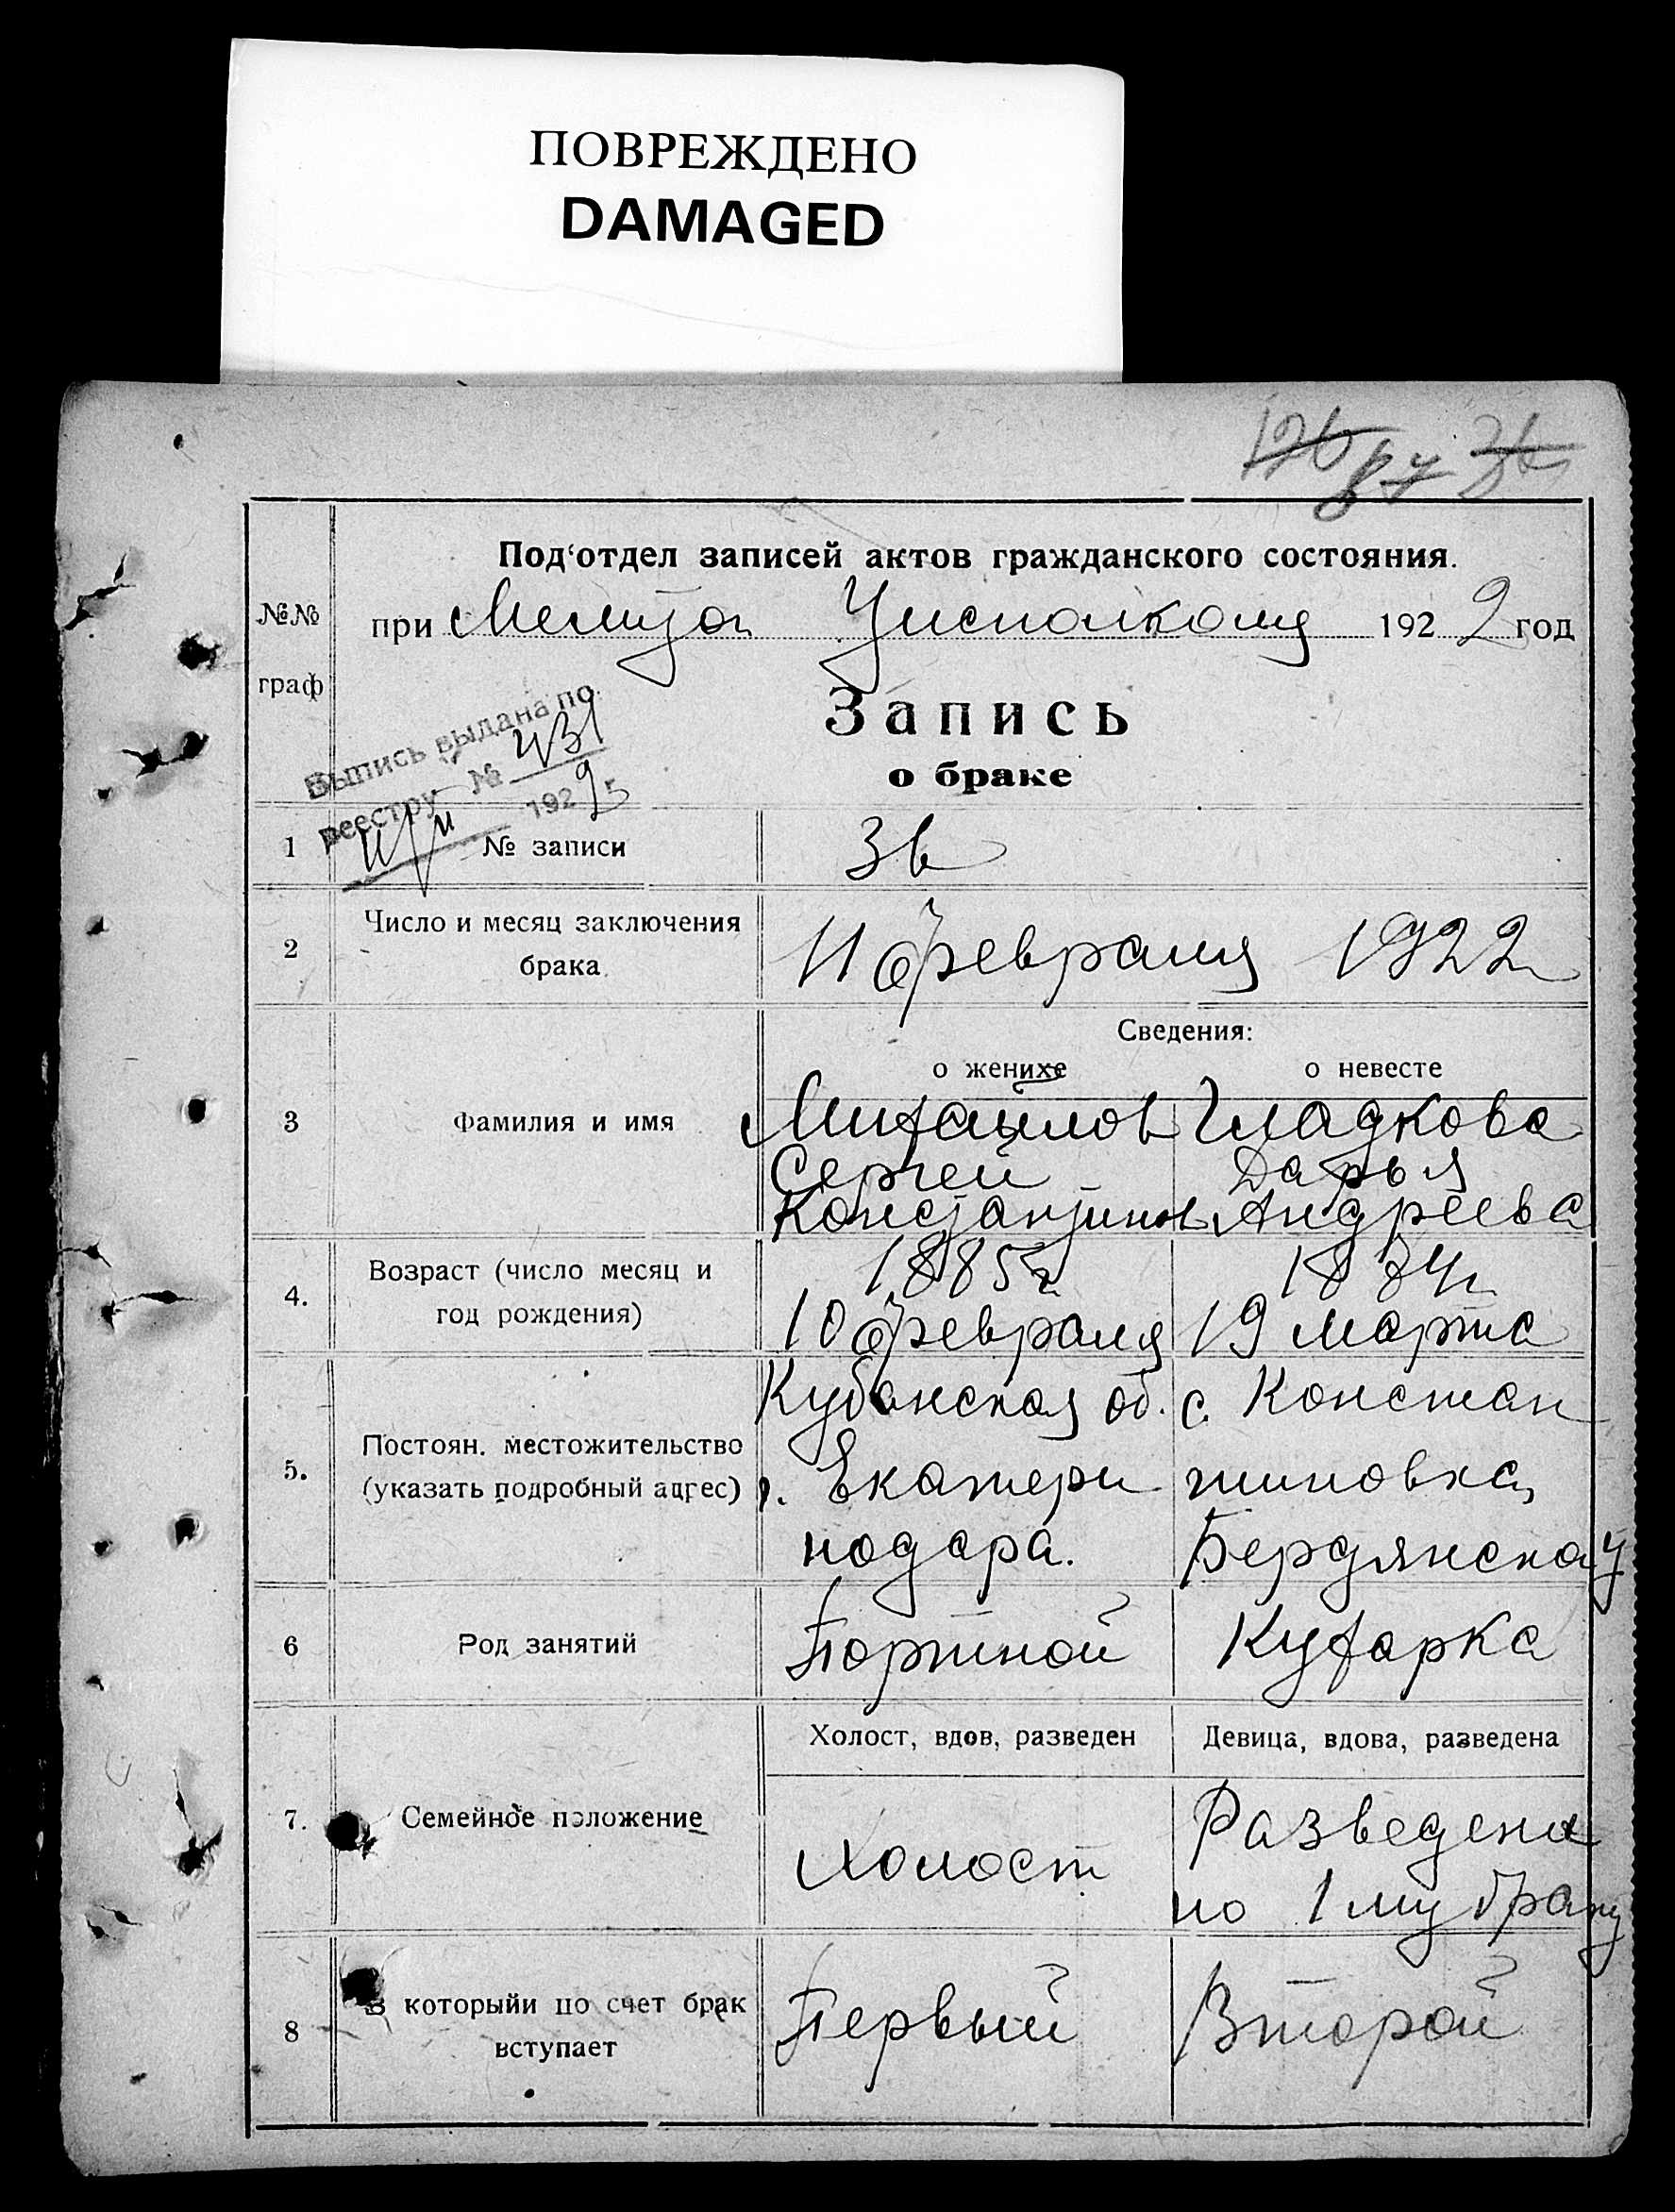 ПОВРЕЖДЕНО
DAMAGED
Под'отдел записей актов гражданского состояния.
№№ граф
при Мелитоп Уисполкому 1922 год
Запись
о браке
Выпись выдана по
реестру № 431
192
1 № записи 36
2 Число и месяц заключения брака 11 февраля 1922
Сведения:
о женихе о невесте
3 Фамилия и имя
Михайлов Гладкова
Сергей Дарья
Константинов Андреева
4. Возраст (число месяц и год рождения)
1885 г 1884 г
10 февраля 19 марта
5. Постоян. местожительство (указать подробный адрес)
Кубанская об. с. Констан
г. Екатери тиновка,
нодара. Бердянска у
6 Род занятий Портной Кухарка
Холост, вдов, разведен Девица, вдова, разведена
7. Семейное положение
Холост Разведена
по 1 му браку
8 В которыйи по счет брак вступает
Первый Второй